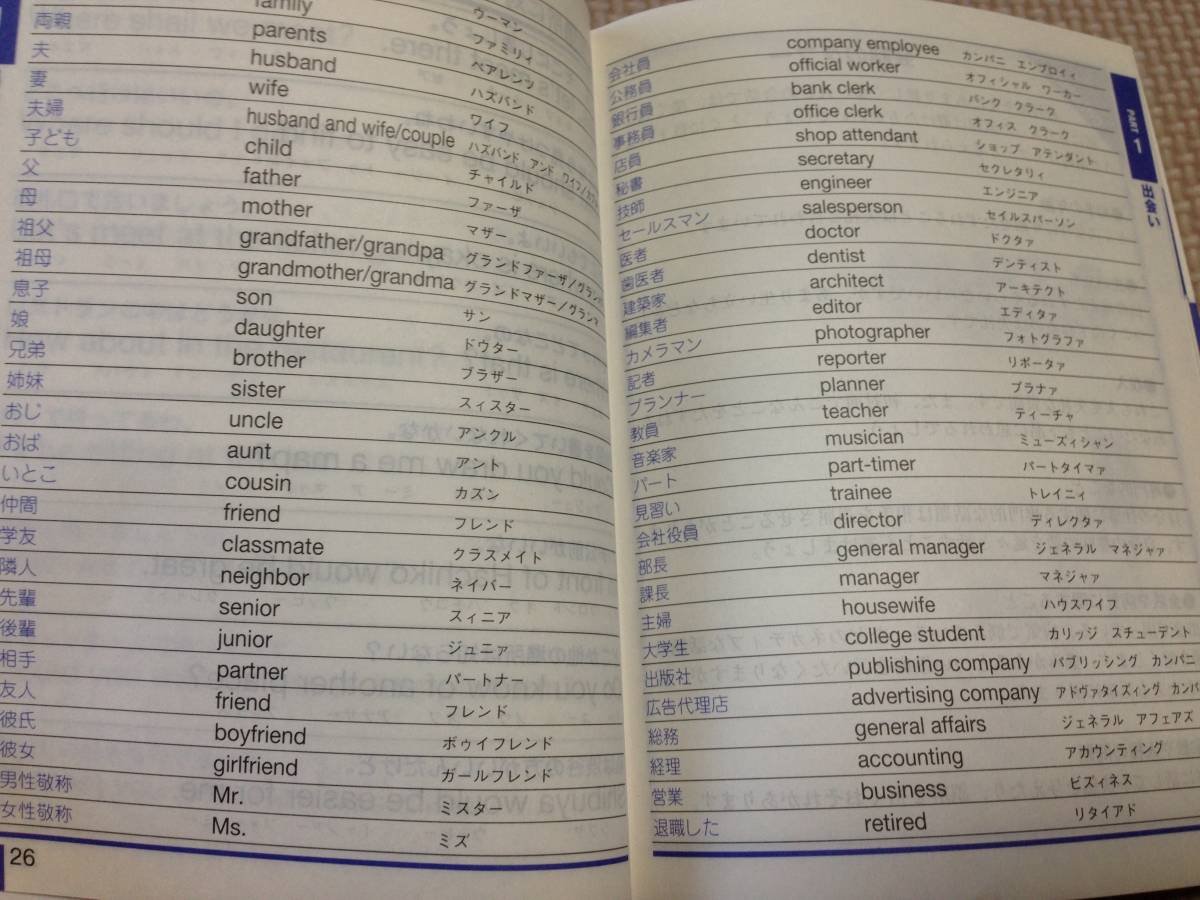 family ウーマン
両親 parents ファミリィ
夫 husband ペアレンツ
妻 wife ハズバンド
夫婦 husband and wife/couple ワイフ
子ども child ハズバンド アンド ワイフ/カプ
父 father チャイルド
母 mother ファーザ
祖父 grandfather/grandpa マザー
祖母 grandmother/grandma グランドファーザ/グラン
息子 son グランドマザー/グランマ
娘 daughter サン
兄弟 brother ドウター
姉妹 sister ブラザー
おじ uncle スィスター
おば aunt アンクル
いとこ cousin アント
仲間 friend カズン
学友 classmate フレンド
隣人 neighbor クラスメイト
先輩 senior ネイバー
後輩 junior スィニア
相手 partner ジュニア
友人 friend パートナー
彼氏 boyfriend フレンド
彼女 girlfriend ボゥイフレンド
男性敬称 Mr. ガールフレンド
女性敬称 Ms. ミスター
ミズ
26
会社員 company employee カンパニ エンプロイィ
公務員 official worker オフィシャル ワーカー
銀行員 bank clerk バンク クラーク
事務員 office clerk オフィス クラーク
店員 shop attendant ショップ アテンダント
秘書 secretary セクレタリィ
技師 engineer エンジニア
セールスマン salesperson セイルスパーソン
医者 doctor ドクタァ
歯医者 dentist デンティスト
建築家 architect アーキテクト
編集者 editor エディタァ
カメラマン photographer フォトグラファ
記者 reporter リポータァ
プランナー planner プラナァ
教員 teacher ティーチャ
音楽家 musician ミューズィシャン
パート part-timer パートタイマァ
見習い trainee トレイニィ
会社役員 director ディレクタァ
部長 general manager ジェネラル マネジャァ
課長 manager マネジャァ
主婦 housewife ハウスワイフ
大学生 college student カリッジ スチューデント
出版社 publishing company パブリッシング カンパニ
広告代理店 advertising company アドヴァタイズィング カンパ
総務 general affairs ジェネラル アフェアズ
経理 accounting アカウンティング
営業 business ビズィネス
退職した retired リタイアド
PART 1
出会い